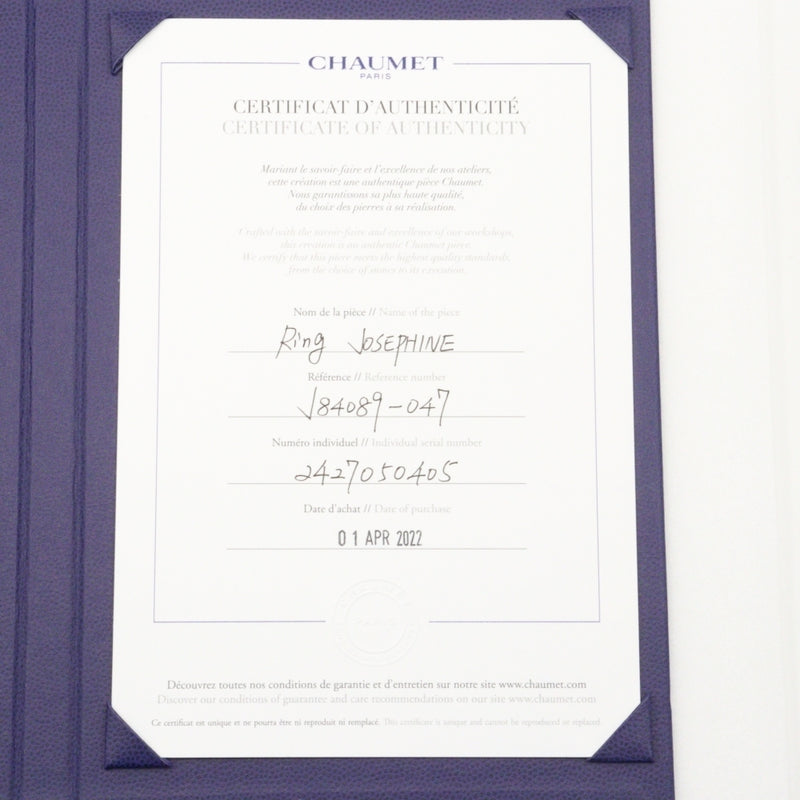 CHAUMET
PARIS
CERTIFICAT D'AUTHENTICITÉ
CERTIFICATE OF AUTHENTICITY
Mariant le savoir-faire et l'excellence de nos ateliers,
cette création est une authentique pièce Chaumet.
Nous garantissons sa plus haute qualité,
du choix des pierres à sa réalisation.
Crafted with the savoir-faire and excellence of our workshops,
this creation is an authentic Chaumet piece.
We certify that this piece meets the highest quality standards,
from the choice of stones to its execution.
Nom de la pièce // Name of the piece
Ring JOSEPHINE
Référence // Reference number
J84089-047
Numéro individuel // Individual serial number
2427050405
Date d'achat // Date of purchase
01 APR 2022
Découvrez toutes nos conditions de garantie et d'entretien sur notre site www.chaumet.com
Discover our conditions of guarantee and care recommendations on our site www.chaumet.com
Ce certificat est unique et ne pourra être ni reproduit ni remplacé. This certificate is unique and cannot be reproduced or replaced.